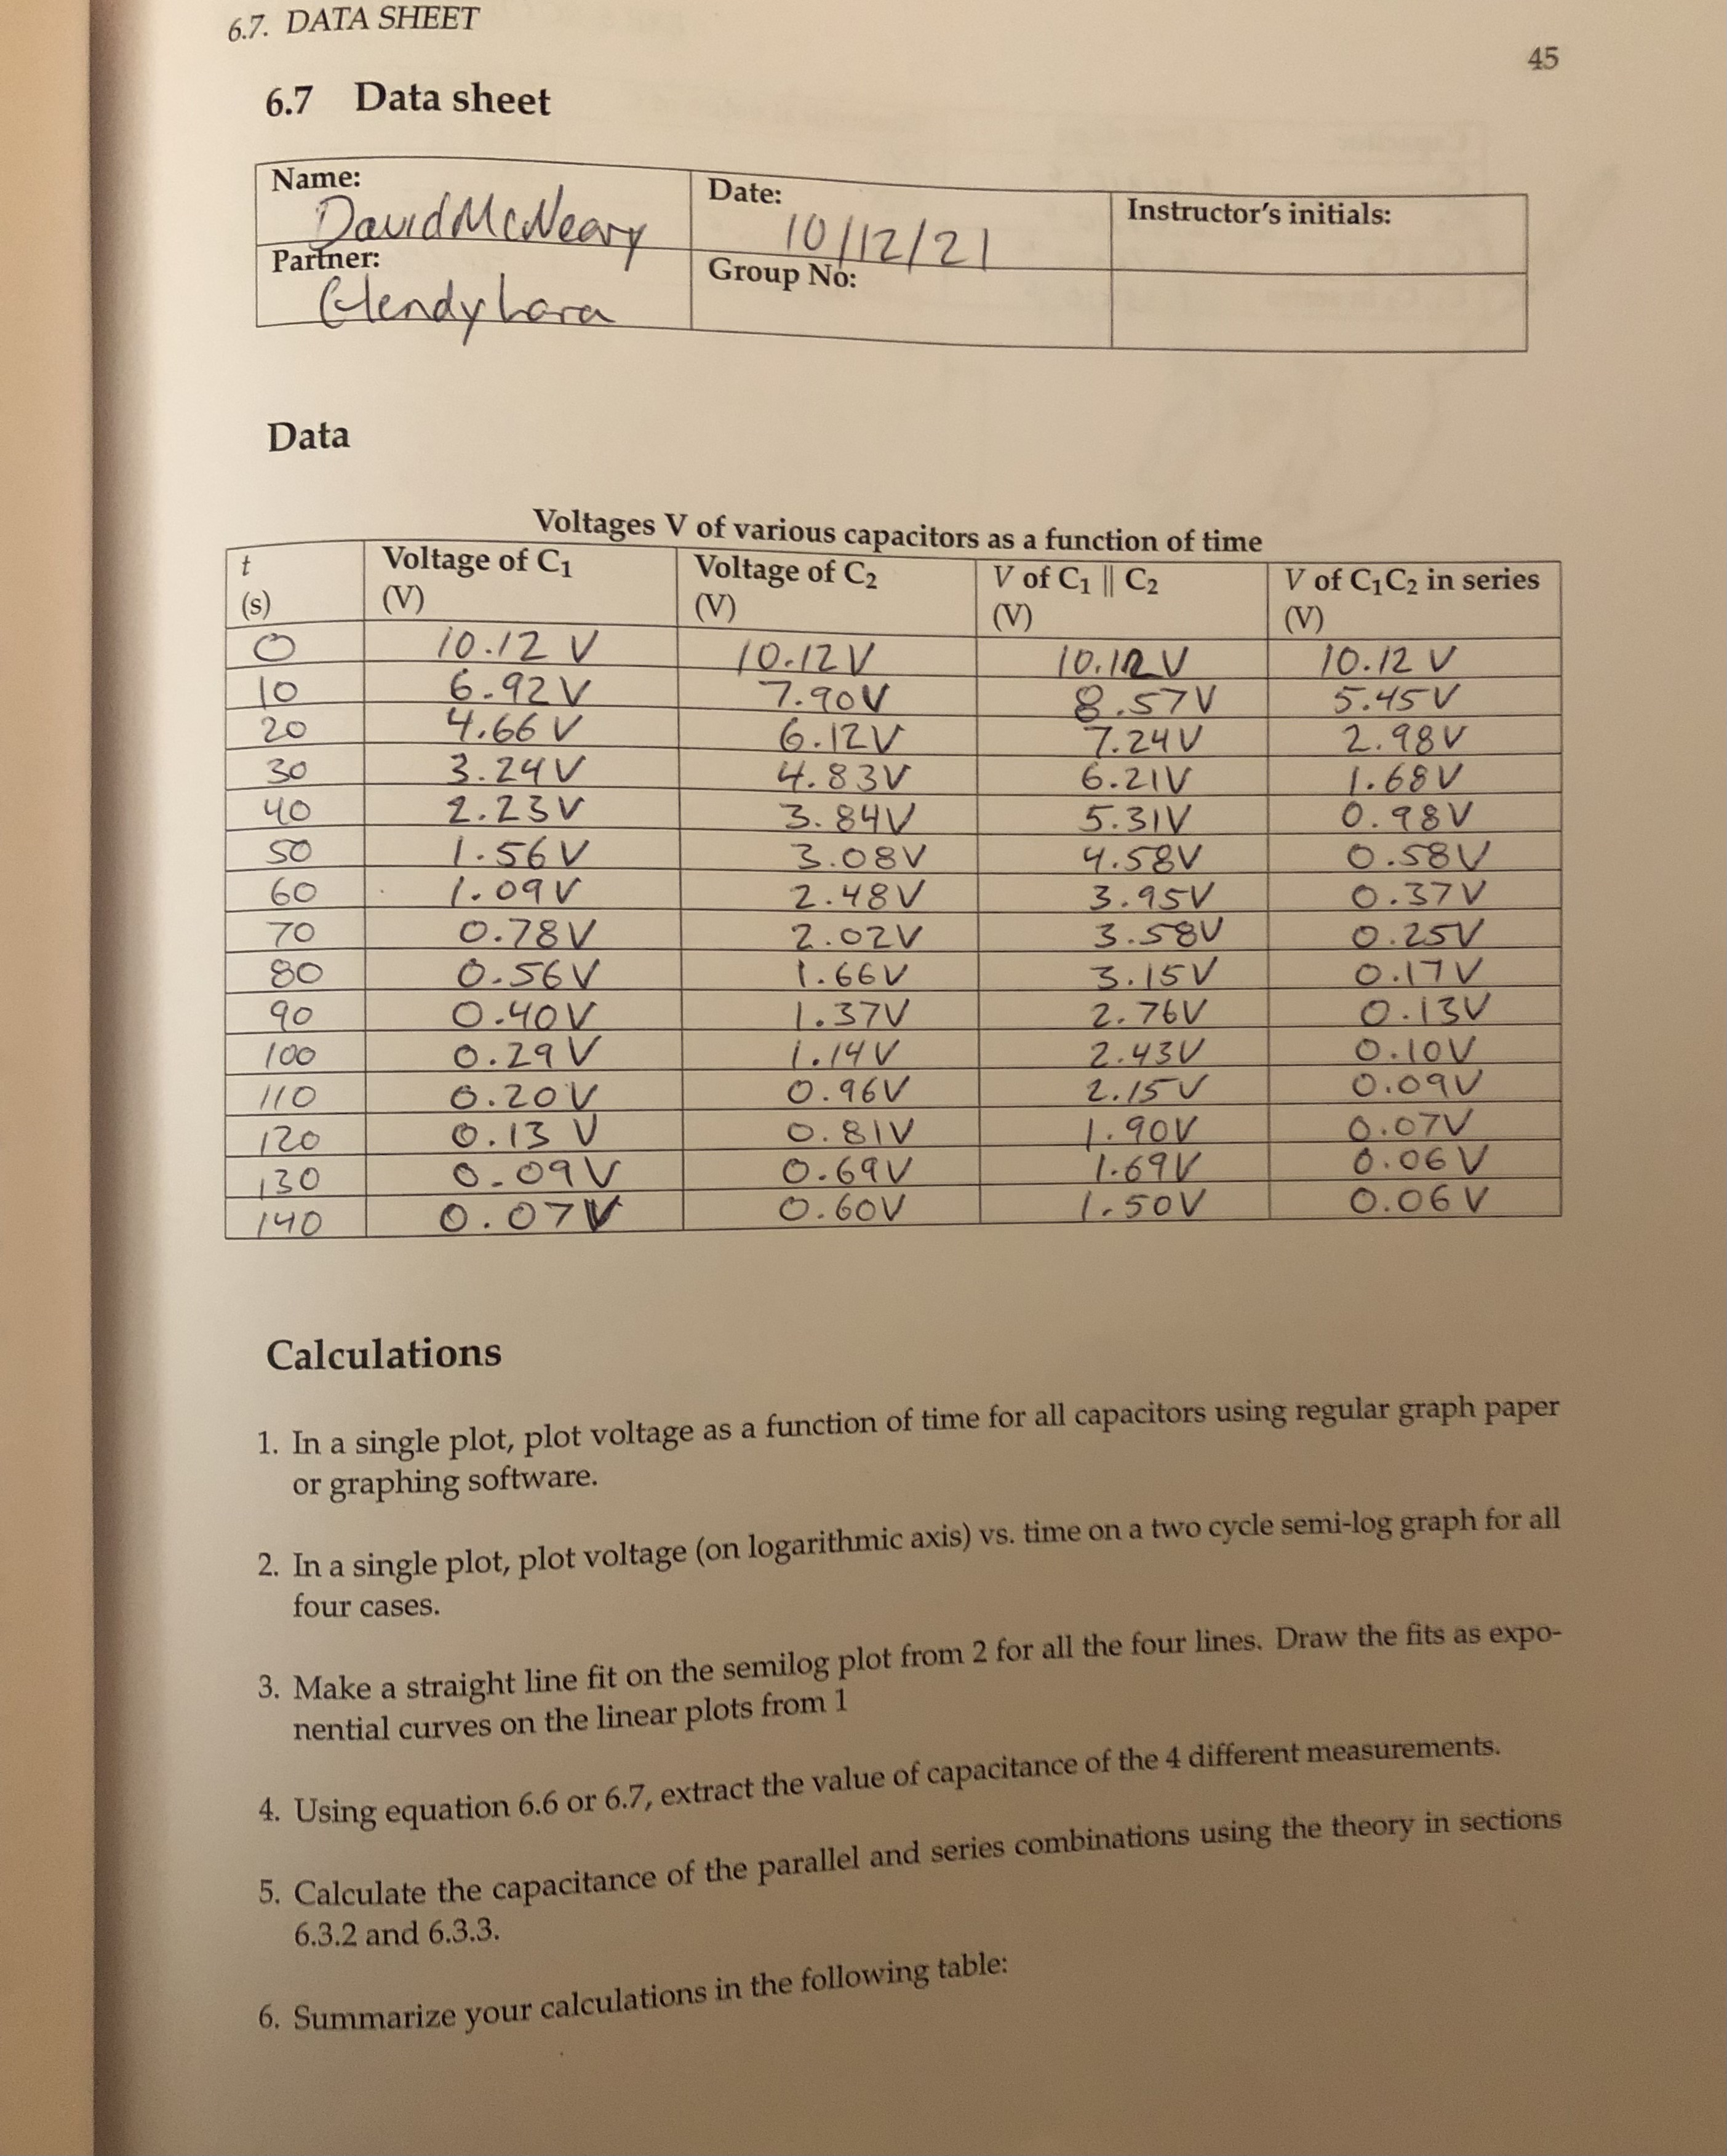 6.7. DATA SHEET
45
6.7 Data sheet
Name: Date: Instructor's initials:
David McNeary 10/12/21
Partner: Group No:
Glendy Lara
Data
Voltages V of various capacitors as a function of time
t Voltage of C₁ Voltage of C₂ V of C₁ || C₂ V of C₁C₂ in series
(s) (V) (V) (V) (V)
0 10.12 V 10.12V 10.12V 10.12 V
10 6.92V 7.90V 8.57V 5.45V
20 4.66 V 6.12V 7.24V 2.98V
30 3.24V 4.83V 6.21V 1.68V
40 2.23V 3.84V 5.31V 0.98V
50 1.56V 3.08V 4.58V 0.58V
60 1.09V 2.48V 3.95V 0.37V
70 0.78V 2.02V 3.58V 0.25V
80 0.56V 1.66V 3.15V 0.17V
90 0.40V 1.37V 2.76V 0.13V
100 0.29V 1.14V 2.43V 0.10V
110 0.20V 0.96V 2.15V 0.09V
120 0.13 V 0.81V 1.90V 0.07V
130 0.09V 0.69V 1.69V 0.06V
140 0.07V 0.60V 1.50V 0.06V
Calculations
1. In a single plot, plot voltage as a function of time for all capacitors using regular graph paper
or graphing software.
2. In a single plot, plot voltage (on logarithmic axis) vs. time on a two cycle semi-log graph for all
four cases.
3. Make a straight line fit on the semilog plot from 2 for all the four lines. Draw the fits as expo-
nential curves on the linear plots from 1
4. Using equation 6.6 or 6.7, extract the value of capacitance of the 4 different measurements.
5. Calculate the capacitance of the parallel and series combinations using the theory in sections
6.3.2 and 6.3.3.
6. Summarize your calculations in the following table: